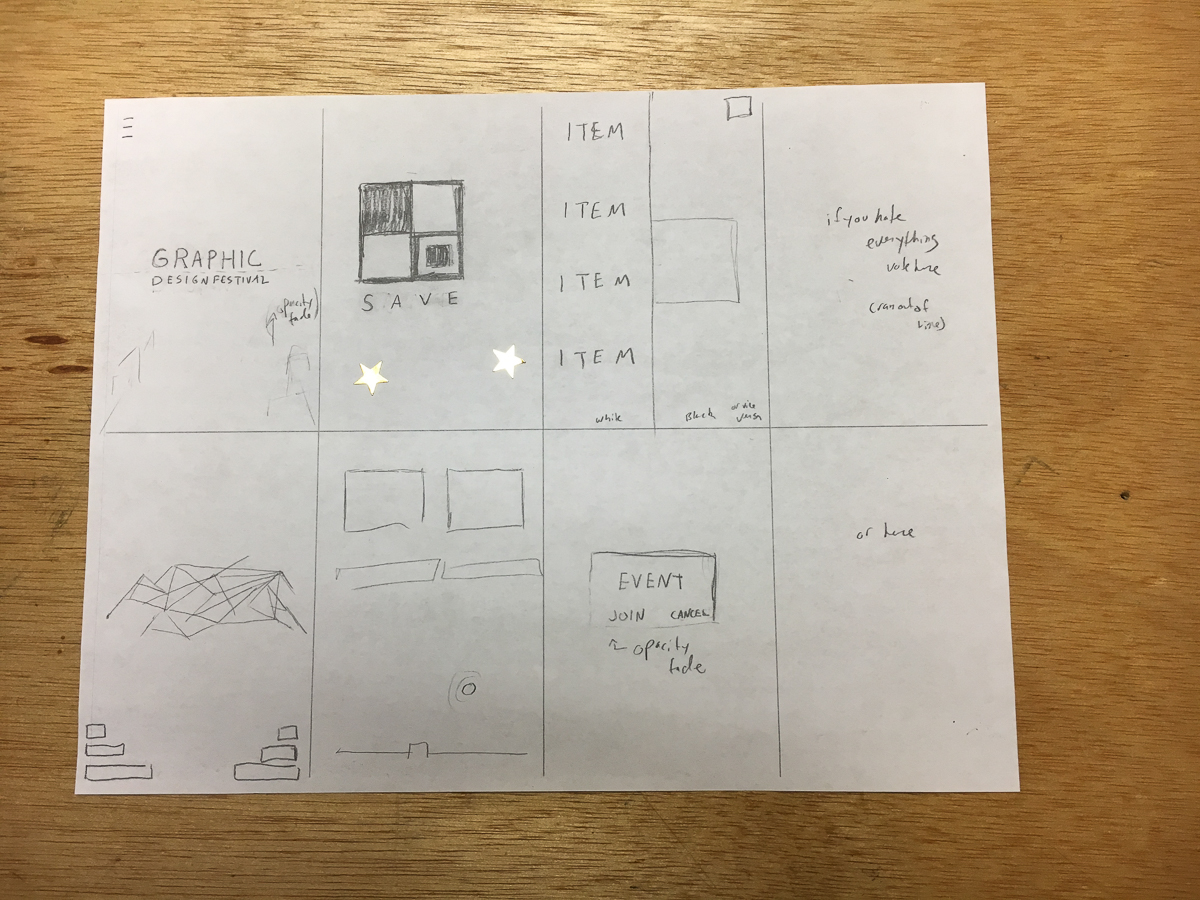 GRAPHIC
DESIGN FESTIVAL
opacity
fade)
SAVE
ITEM
ITEM
ITEM
ITEM
white
Black
or vice
versa
if you hate
everything
vote here
(ran out of
time)
EVENT
JOIN CANCEL
opacity
fade
or here